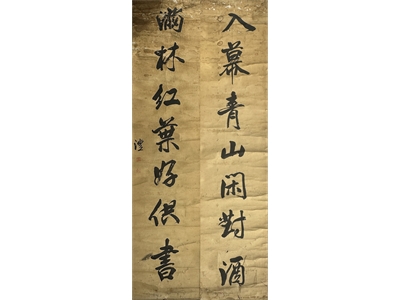 入幕青山閑對酒
滿林紅葉好供書